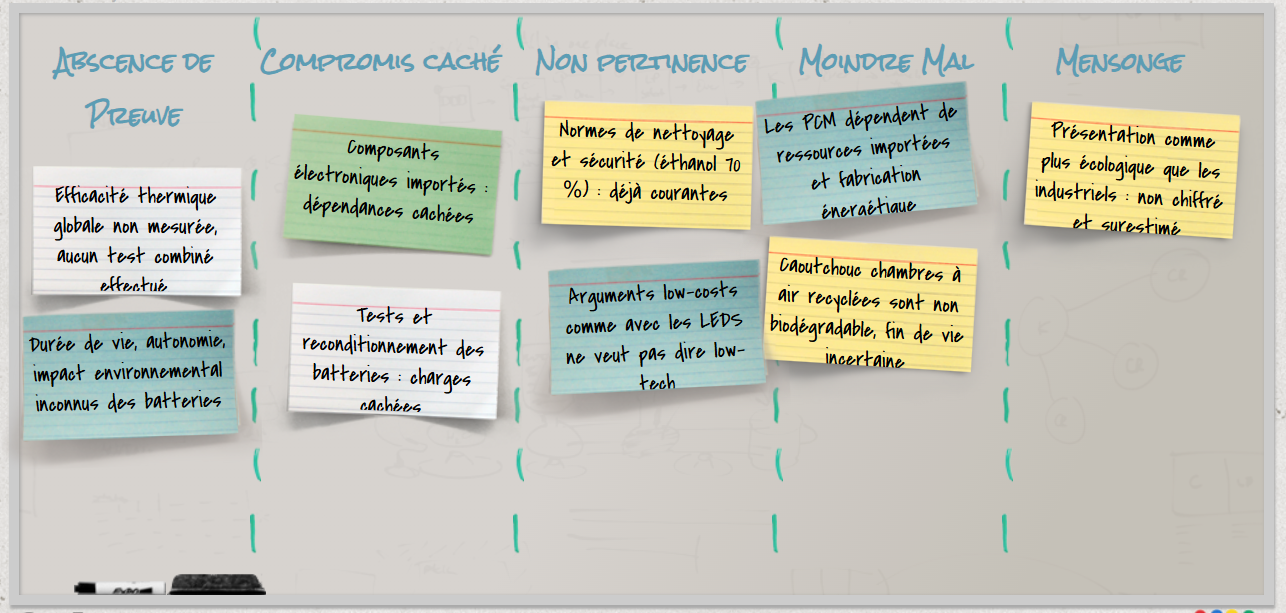 Abscence de
Preuve
Compromis caché
Non pertinence
Moindre Mal
Mensonge
Efficacité thermique
globale non mesurée,
aucun test combiné
effectué
Durée de vie, autonomie,
impact environnemental
inconnus des batteries
Composants
électroniques importés :
dépendances cachées
Tests et
reconditionnement des
batteries : charges
cachées
Normes de nettoyage
et sécurité (éthanol 70
%) : déjà courantes
Arguments low-costs
comme avec les LEDS
ne veut pas dire low-
tech
Les PCM dépendent de
ressources importées
et fabrication
énergétique
Caoutchouc chambres à
air recyclées sont non
biodégradable, fin de vie
incertaine
Présentation comme
plus écologique que les
industriels : non chiffré
et surestimé
EXPO